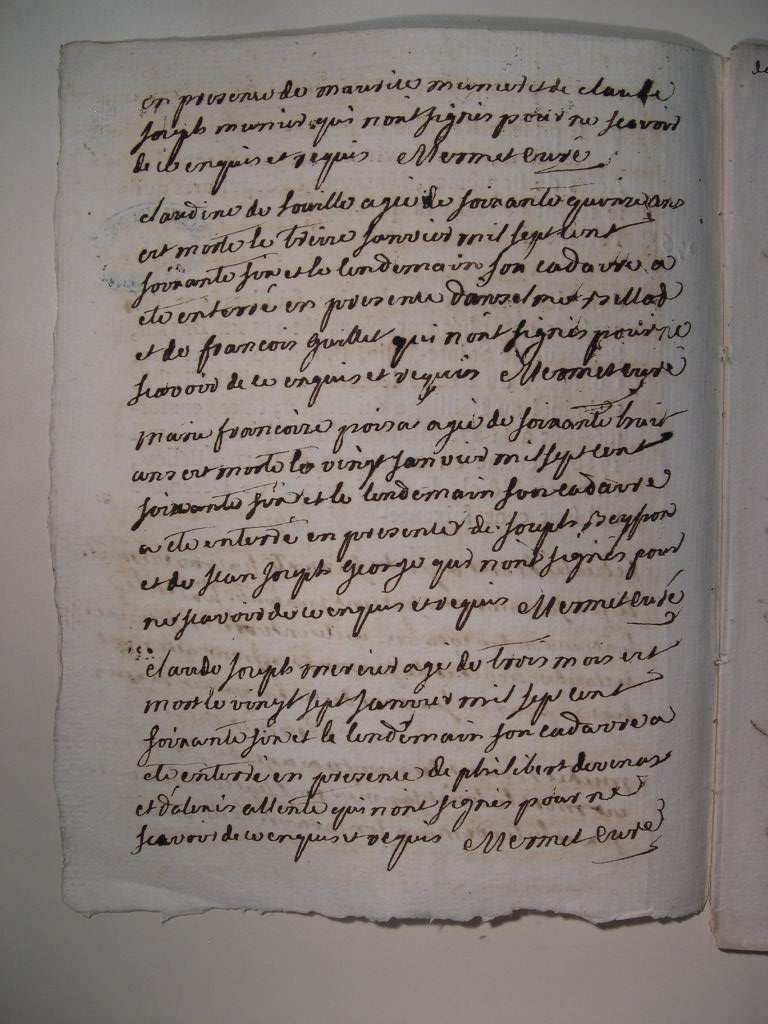 en presence de maurice munier et de claude
joseph munier qui n'ont signés pour ne scavoir
de ce enquis et requis Mermet curé
claudine de souille agée de soixante quinze ans
est morte le treize janvier mil sept cent
soixante six et le lendemain son cadavre a
ete enterré en presence d'anselme
et de francois Guillet qui n'ont signés pour ne
scavoir de ce enquis et requis Mermet curé
marie francoise agée de soixante huit
ans est morte le vingt janvier mil sept cent
soixante six et le lendemain son cadavre
a ete enterré en presence de joseph
et de jean joseph George qui n'ont signés pour
ne scavoir de ce enquis et requis Mermet curé
claude joseph mercier agé de trois mois est
mort le vingt sept janvier mil sept cent
soixante six et le lendemain son cadavre a
ete enterré en presence de philibert devenas
et d'alexis allente qui n'ont signés pour ne
scavoir de ce enquis et requis Mermet curé